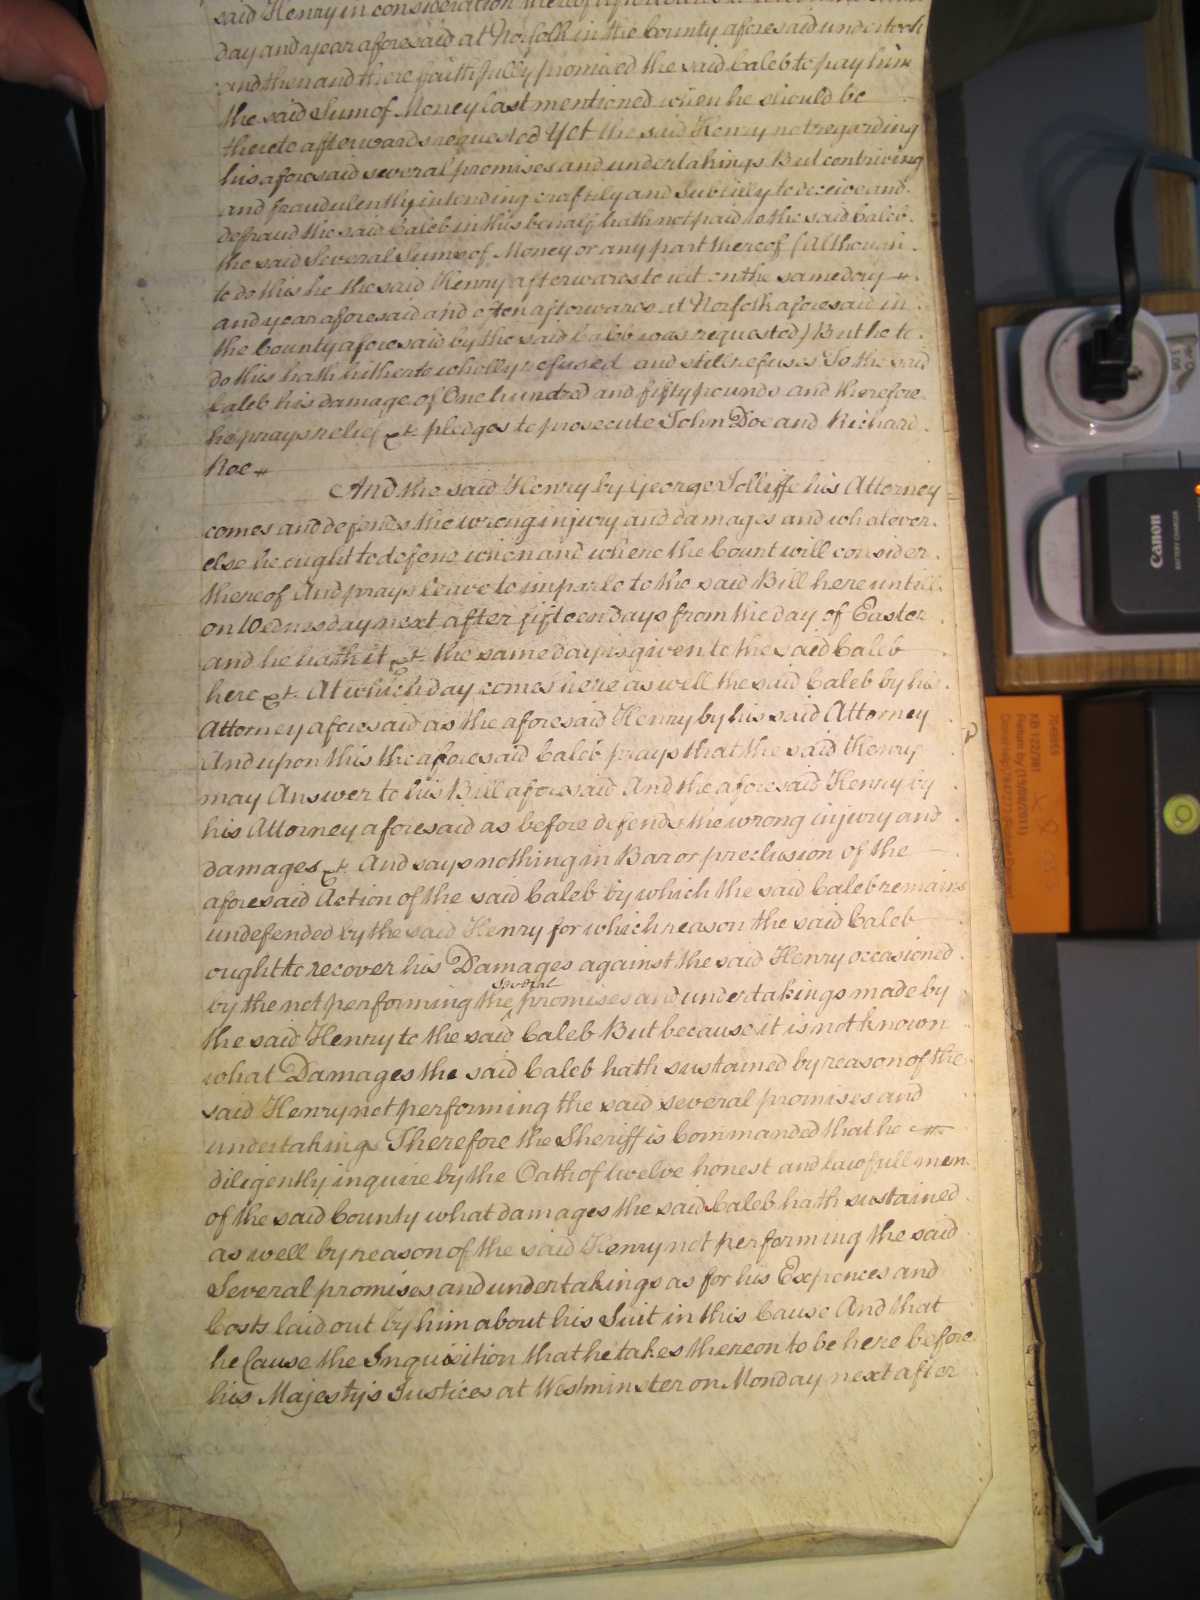 said Henry in consideration thereof
day and year aforesaid at Norfolk in the County aforesaid undertook
and then and there faithfully promised the said Caleb to pay him
the said Sum of Money last mentioned when he should be
thereto afterwards requested Yet the said Henry not regarding
his aforesaid several promises and undertakings But contriving
and fraudulently intending craftily and Subtilly to deceive and
defraud the said Caleb in this behalf hath not paid to the said Caleb
the said Several Sums of Money or any part thereof (Although
to do this he the said Henry afterwards to wit on the same day
and year aforesaid and often afterwards at Norfolk aforesaid in
the County aforesaid by the said Caleb was requested) But he to
do this hath hitherto wholly refused and still refuses To the said
Caleb his damage of One hundred and fifty pounds and therefore
he prays relief &c pledges to prosecute John Doe and Richard
Roe
And the said Henry by George Jolliffe his Attorney
comes and defends the wrong injury and damages and whatever
else he ought to defend when and where the Court will consider
thereof And prays leave to imparle to the said Bill here untill
on Wednesday next after fifteen days from the day of Easter
and he hath it &c the same day is given to the said Caleb
here &c At which day comes here as well the said Caleb by his
Attorney aforesaid as the aforesaid Henry by his said Attorney
And upon this the aforesaid Caleb prays that the said Henry
may Answer to his Bill aforesaid And the aforesaid Henry by
his Attorney aforesaid as before defends the wrong injury and
damages &c And says nothing in Bar or preclusion of the
aforesaid Action of the said Caleb by which the said Caleb remains
undefended by the said Henry for which reason the said Caleb
ought to recover his Damages against the said Henry occasioned
by the not performing the several promises and undertakings made by
the said Henry to the said Caleb But because it is not known
what Damages the said Caleb hath sustained by reason of the
said Henry not performing the said several promises and
undertakings Therefore the Sheriff is Commanded that he
diligently inquire by the Oath of twelve honest and lawfull men
of the said County what damages the said Caleb hath sustained
as well by reason of the said Henry not performing the said
Several promises and undertakings as for his Expences and
Costs laid out by him about his Suit in this Cause And that
he Cause the Inquisition that he takes thereon to be here before
his Majesty's Justices at Westminster on Monday next after
Canon
BATTERY CHARGER
KB 122/381
Return by (13/09/2011)